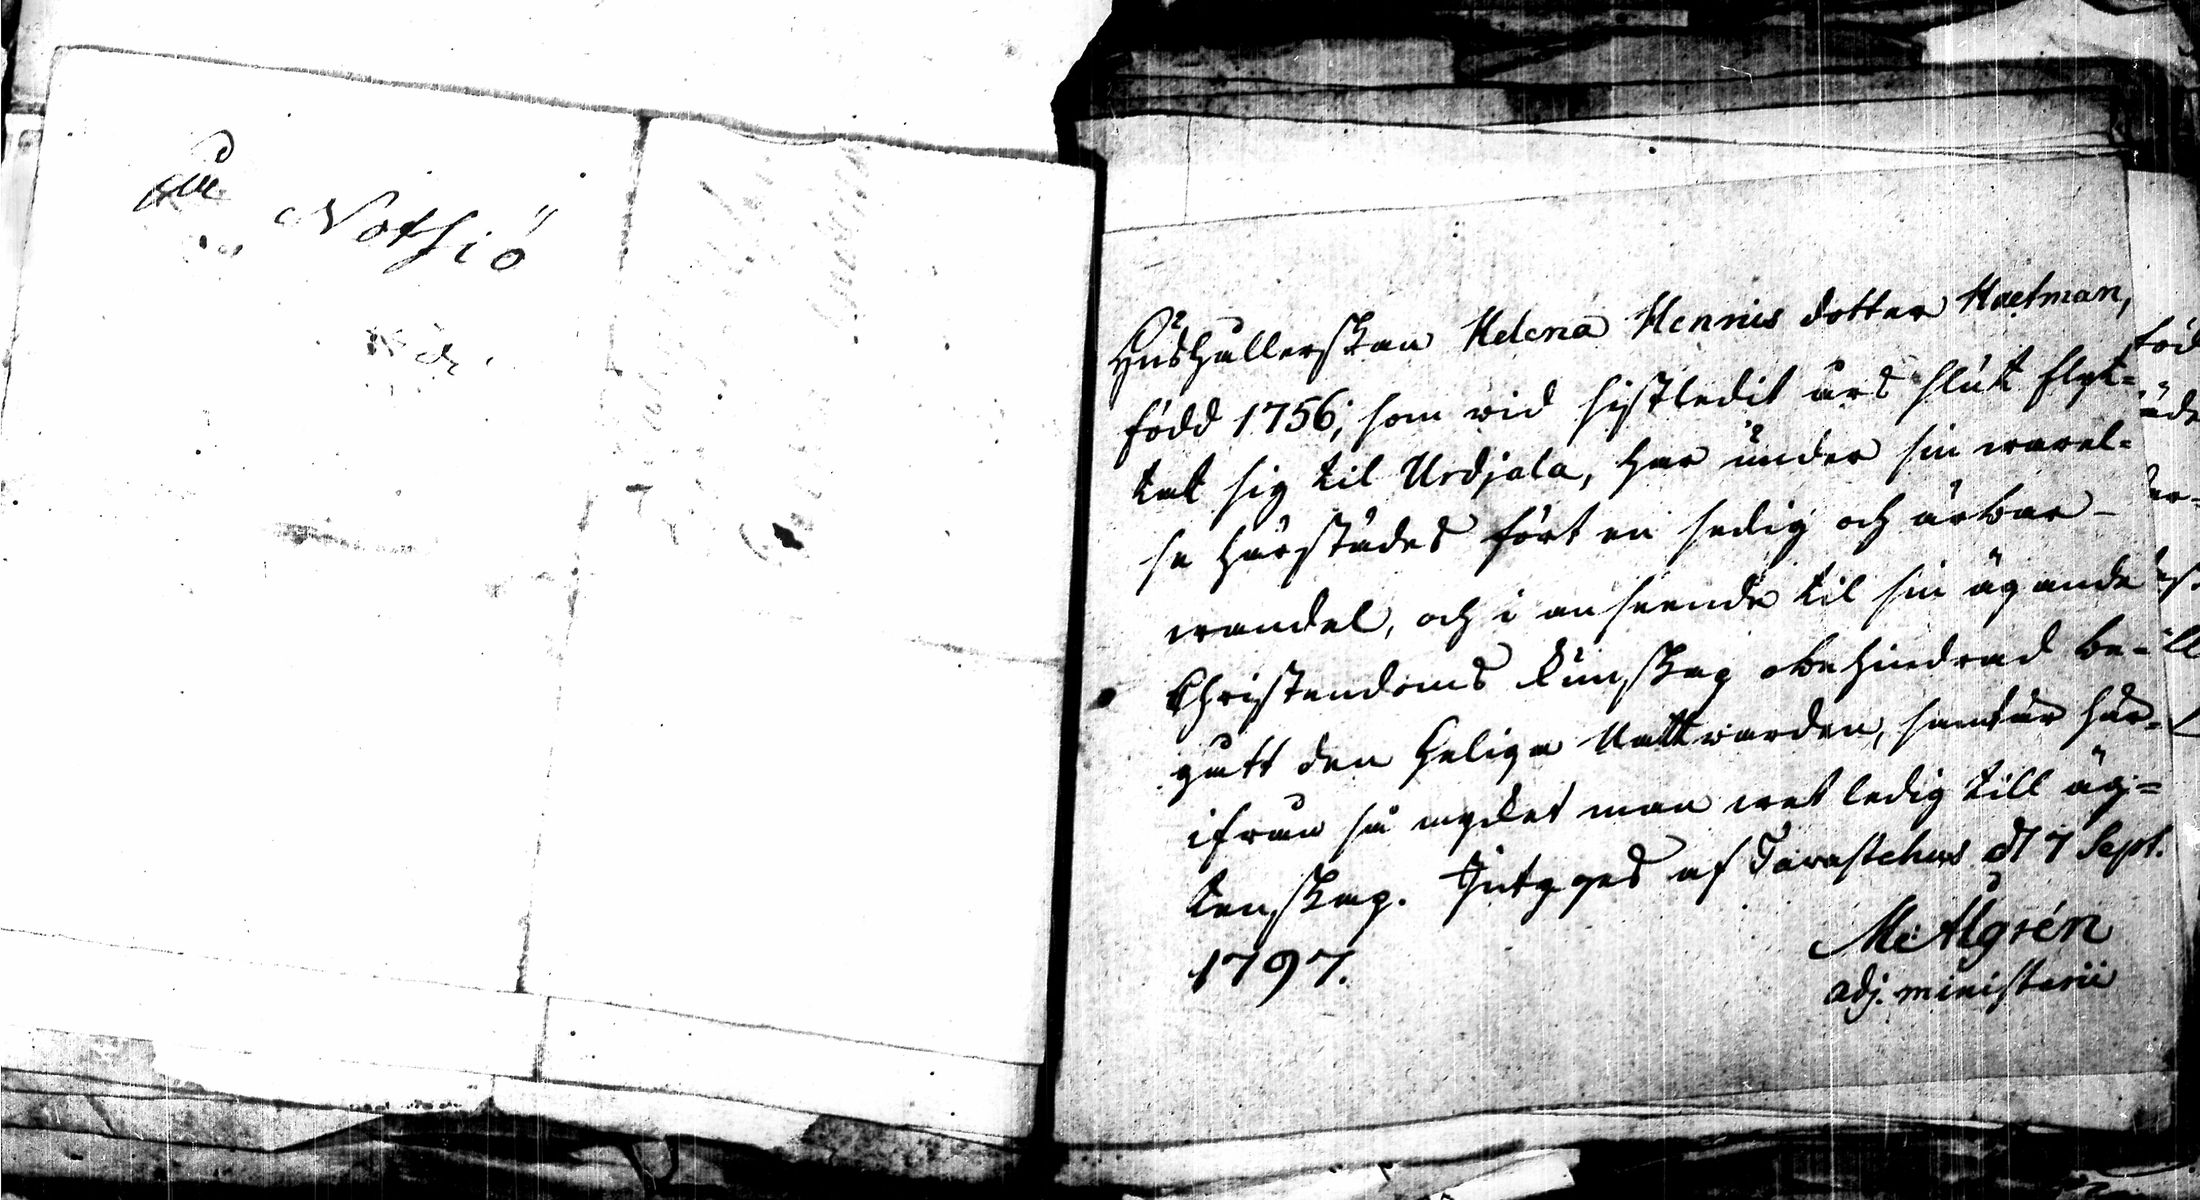 Notsiö
Hushållerskan Helena Hennis dotter Hartman,
född 1756, som wid sistledit års slut flyt-
tat sig til Urdjala, har under sin warel-
se härstädes fört en sedig och ärbar
wandel, och i anseende til sin ägande
Christendoms kunskap obehindrad be-
gått den heliga Nattwarden, samt är här-
ifrån så mycket man wet ledig till äg-
tenskap. Intygas af Tavastehus d 7 Sept.
1797.
Algrén
adj. ministerii